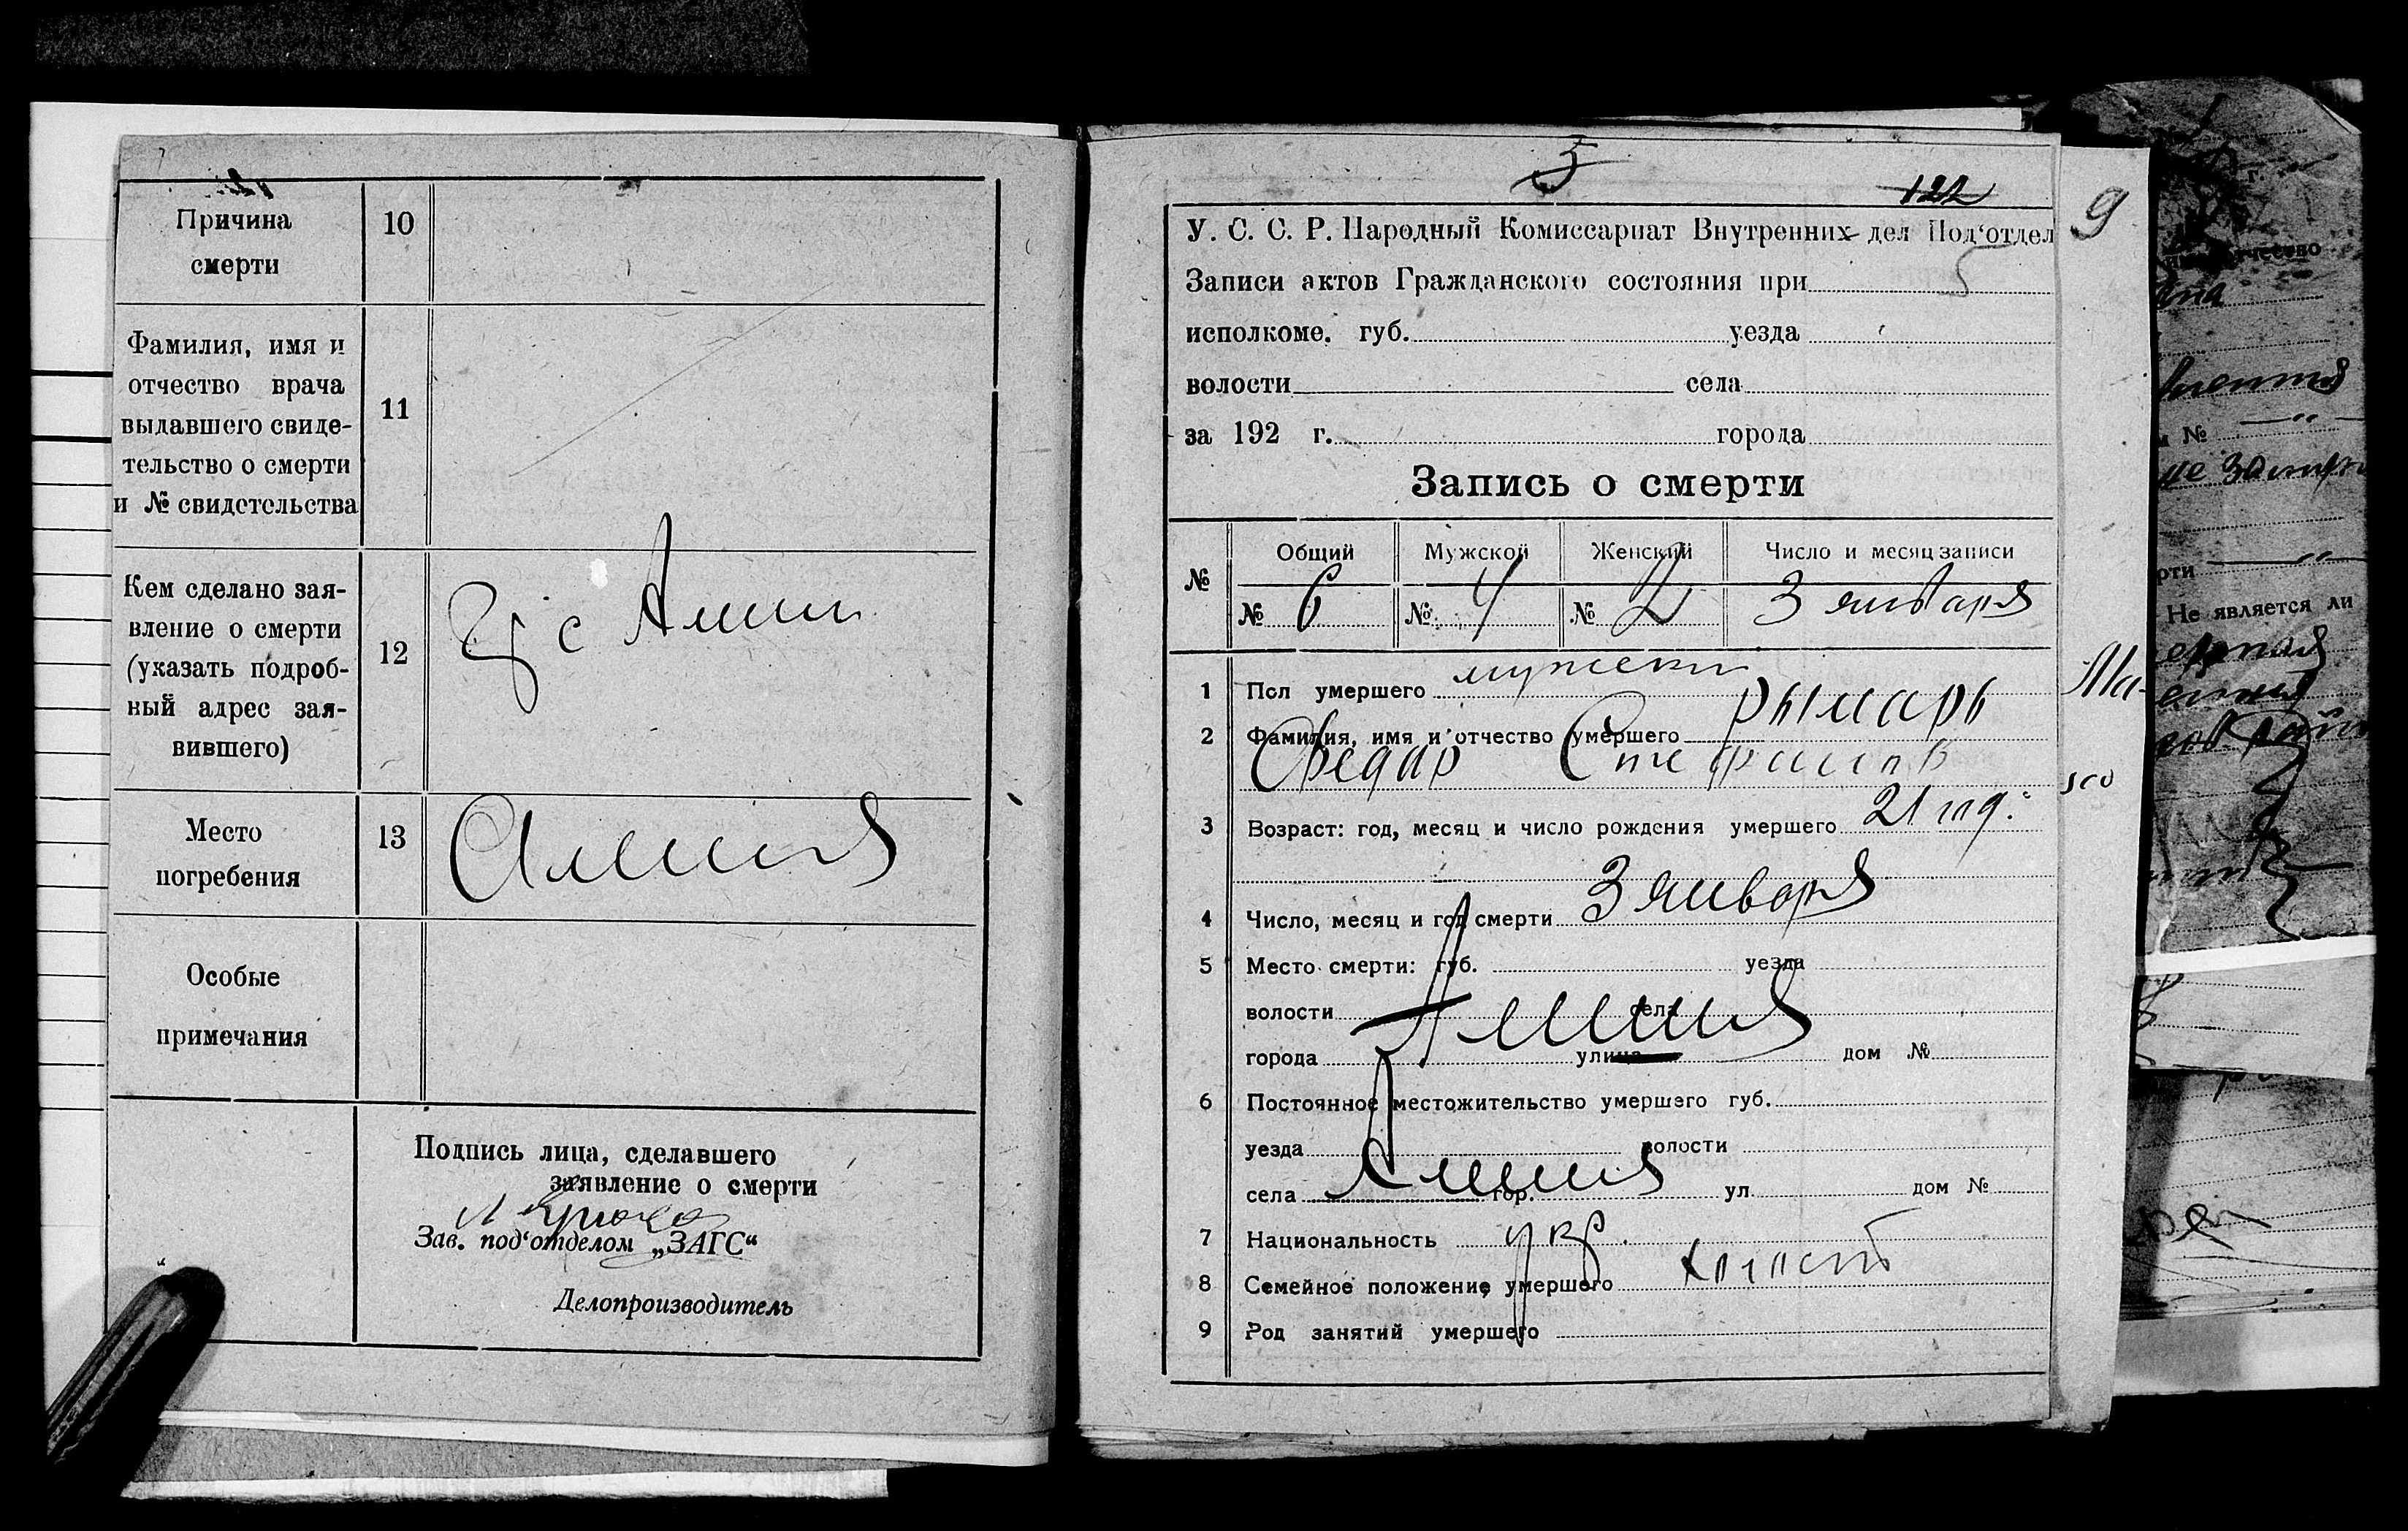 Причина
смерти
10
Фамилия, имя и
отчество врача
выдавшего свиде-
тельство о смерти
и № свидетельства
11
Кем сделано зая-
вление о смерти
(указать подроб-
ный адрес зая-
вившего)
12
с
Место
погребения
13
Особые
примечания
Подпись лица, сделавшего
заявление о смерти
Зав. под‘отделом „ЗАГС“
Делопроизводитель
5
122
9
У. С. С. Р. Народный Комиссариат Внутренних дел Под‘отдел
Записи актов Гражданского состояния при 5
исполкоме. губ. уезда
волости села
за 192 г. города
Запись о смерти
№ Общий Мужской Женский Число и месяц записи
№ 6 № 4 № 2 3 января
1 Пол умершего мужски
2 Фамилия, имя и отчество умершего Рымарь
Федар Стефанов
3 Возраст: год, месяц и число рождения умершего 21 год.
4 Число, месяц и год смерти 3 января
5 Место смерти: губ. уезда
волости села
города улица дом №
6 Постоянное местожительство умершего губ.
уезда волости
села гор. ул. дом №
7 Национальность укр.
8 Семейное положение умершего холост
9 Род занятий умершего
г.
№
рти
Не является ли